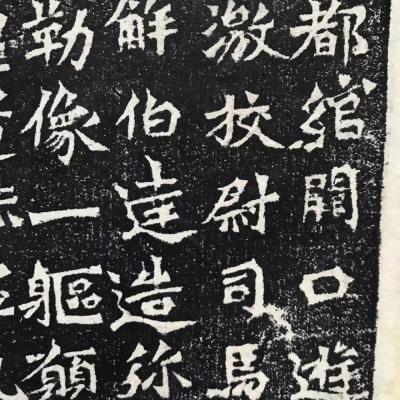 都綰闕口遊
激校尉司馬
解伯達造弥
勒像一軀願